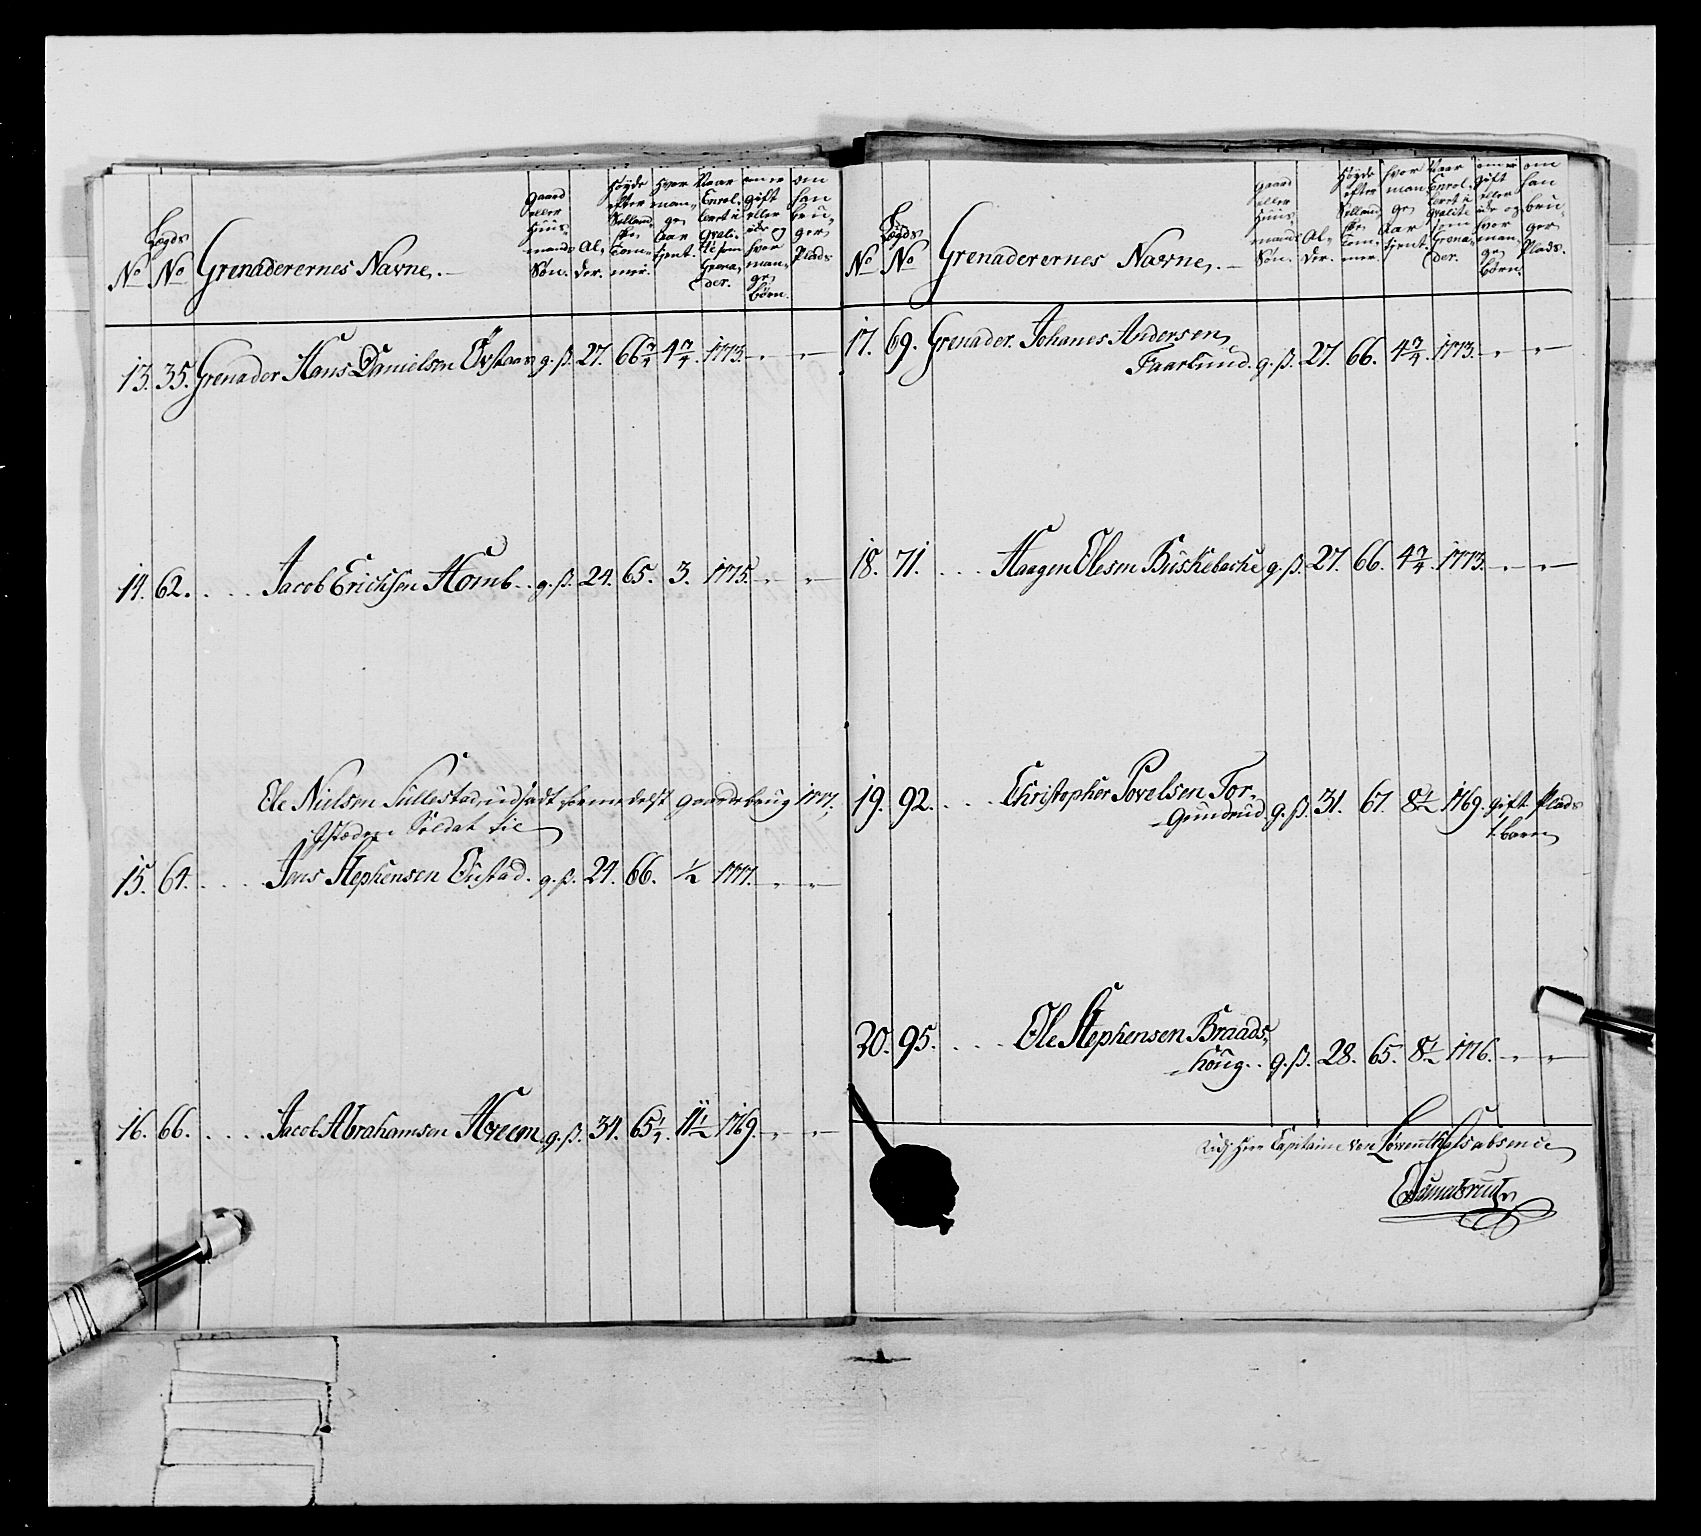 No
Lægds No
Grenaderernes Navne.
gaard eller Huus-mands Søn.
Al-der.
Høyde efter Sellandske Tommer.
Hvor mange Aar tjent.
Naar Enrollert i Qvalité som Grenader.
om er gift eller ude og hvor mange børn.
om han bruger Plads
13. 35. Grenader Hans Danielsen g. S. 27. 66 3/4 4 3/4 1773. " "
14. 62. . . . Jacob Erichsen Homb. g. S. 24. 65. 3. 1775. " "
Ole Nielsen Sullestad, udsadt formedelst gaardebrug 1777,
istæden Soldat til
15. 64. . . . Jens Stephensen g. S. 24. 66. 1/2 1777. " "
16. 66. . . . Jacob Abrahamsen Hveem. g. S. 34. 65 1/4. 11 1/2 1769. " "
No
Lægds No
Grenaderernes Navne.
gaard eller Huus-mands Søn.
Al-der.
Høyde efter Sellandske Tommer.
hvor mange Aar tjent.
Naar Enrollert i Qvalité som Grenader.
om er gift eller ude og hvor mange børn.
om han bruger Plads.
17. 69. Grenader. Johanes Andersen
Faarlund. g. S. 27. 66. 4 3/4. 1773. " "
18. 71. . . . Haagen Olesen g. S. 27. 66. 4 3/4. 1773. " "
19. 92. . . . Christopher Povelsen Tor-
Gunderud. g. S. 31. 67. 8 1/2 1769. gift Plads
1. barn
20. 95. . . . Ole Stephensen Braads-
houg. . g. S. 28. 65. 8 1/2 1776. " "
Udj Herr Capitaine von Løventhals absence